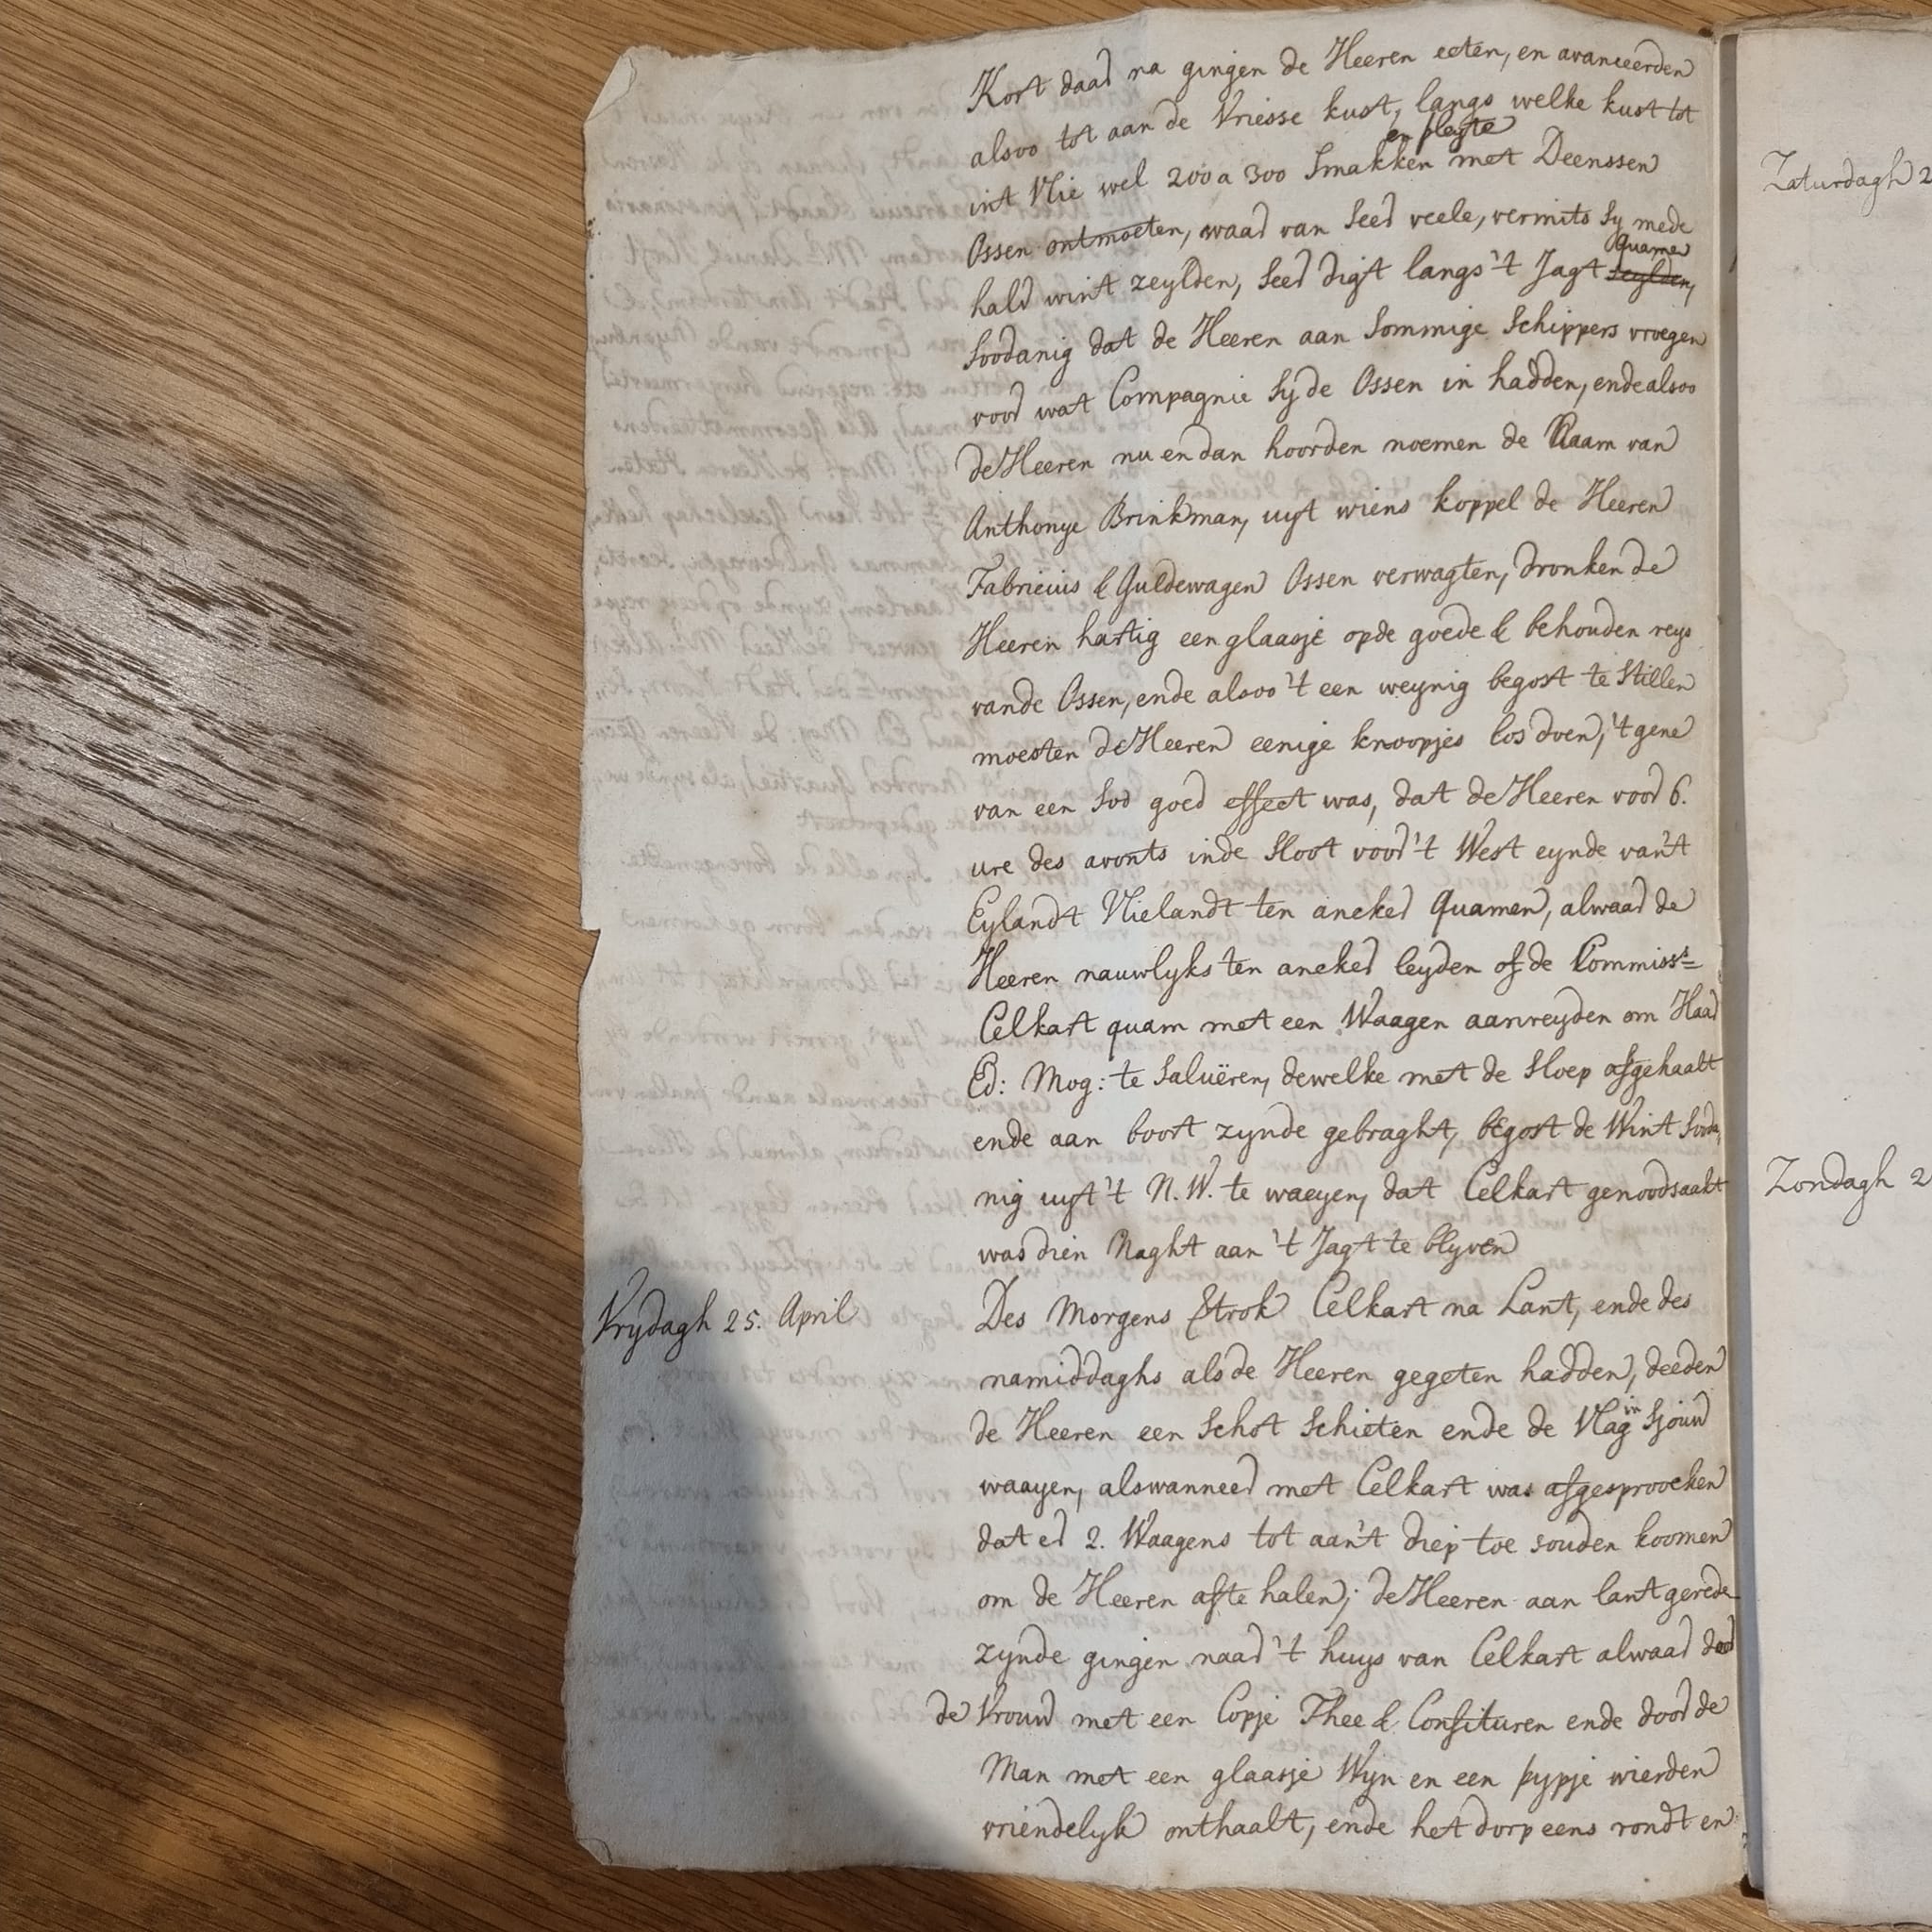 Kort daar na gingen de Heeren eeten, en avanceerden
alsoo tot aan de Vriesse kust, langs welke kust tot
en pleyte
int Vlie wel 200 a 300 Smakken met Deenssen
Ossen ontmoeten, waar van seer veele, vermits sy mede
quame
half wint zeylden, seer digt langs 't Jagt seylden,
soodanig dat de Heeren aan sommige Schippers vroegen
voor wat Compagnie sy de Ossen in hadden, ende alsoo
de Heeren nu en dan hoorden noemen de Naam van
Anthonye Brinkman, uyt wiens koppel de Heeren
Fabricius & Guldewagen Ossen verwagten, dronken de
Heeren hartig een glaasje op de goede & behouden reys
vande Ossen, ende alsoo 't een weynig begost te stillen
moesten de Heeren eenige knoopjes los doen, 't gene
van een soo goed effect was, dat de Heeren voor 6.
ure des avonts inde Sloot voor 't West eynde van't
Eylandt Vlielandt ten ancker quamen, alwaar de
Heeren nauwlyks ten ancker leyden of de Commiss:s
Celkart quam met een Waagen aanreyden om Haar
Ed: Mog: te salueren, dewelke met de sloep afgehaalt
ende aan boort zynde gebraght, begost de Wint sooda,
nig uyt 't N.W. te waeyen, dat Celkart genoodsaakt
was dien Naght aan 't Jagt te blyven
Vrydagh 25. April
Des Morgens Strok Celkart na Lant, ende des
namiddaghs als de Heeren gegeten hadden, deeden
in
de Heeren een Schot schieten ende de Vlag Sjouw
waayen, als wanneer met Celkart was afgesproocken
dat er 2. Waagens tot aan't diep toe souden koomen
om de Heeren af te halen; de Heeren aan lant gerede
zynde gingen naar 't huys van Celkart alwaar door
de Vrouw met een Copje Thee & Confituren ende door de
Man met een glaasje Wyn en een pypje wierden
vriendelyk onthaalt, ende het dorp eens rondt en
Zaturdagh 2
Zondagh 2